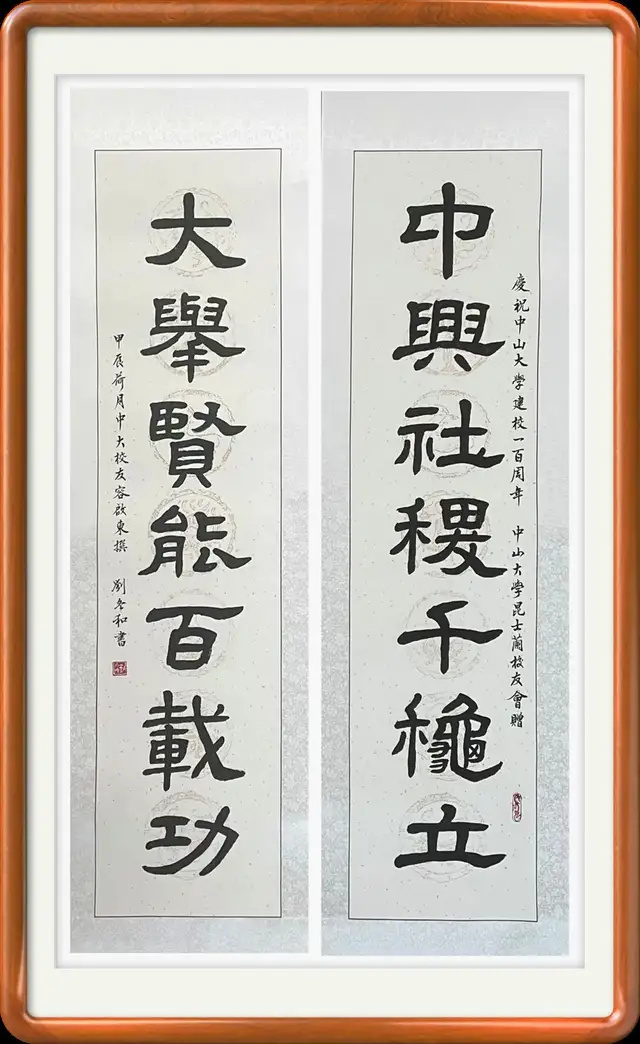 慶祝中山大學建校一百周年 中山大學昆士蘭校友會贈
中興社稷千龝立
大舉賢能百載功
甲辰荷月中大校友容啟東撰 劉冬和書